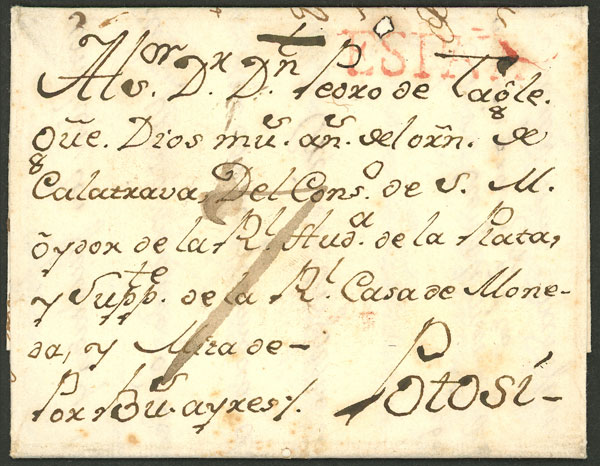 ESPAÑA
Al Sor. Dr. Dn. Pedro de Tagle.
que. Dios ms. as. del orn. de
Calatrava, Del Conso. de S. M.
oydor de la Rl. Auda. de la Plata,
y Suppte. de la Rl. Casa de Mone-
da, y Mita de-
Por Bs. ayres/. Potosí-